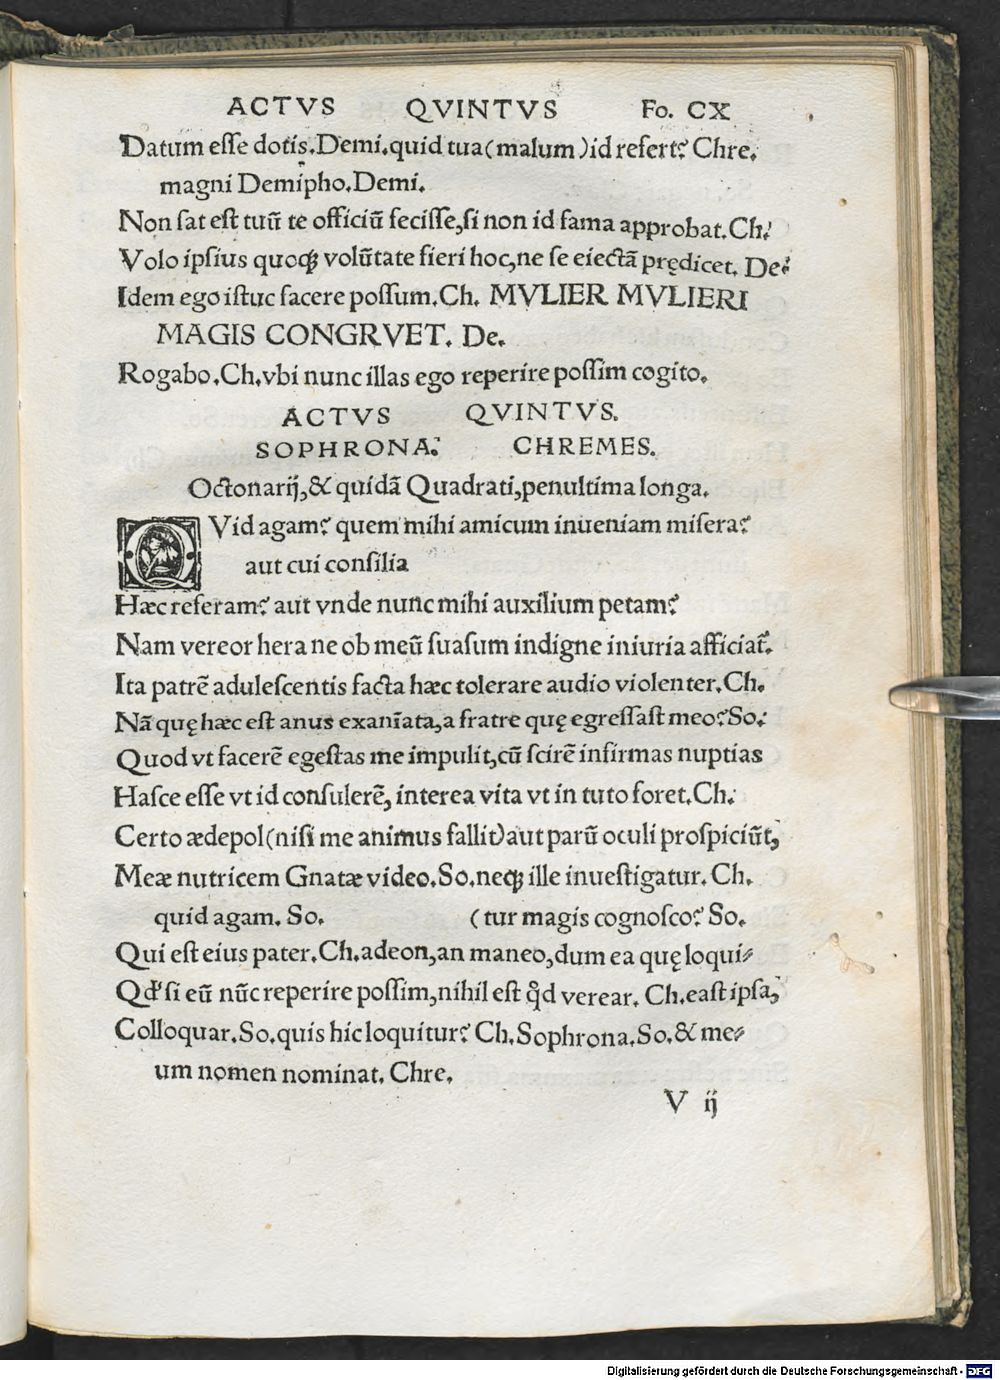 ACTVS QVINTVS Fo. CX
Datum esse dotis. Demi. quid tua (malum) id refert? Chre.
magni Demipho. Demi.
Non sat est tuũ te officiũ fecisse, si non id fama approbat. Ch.
Volo ipsius quoqꝫ volũtate fieri hoc, ne se eiectã prędicet. De.
Idem ego istuc facere possum. Ch. MVLIER MVLIERI
MAGIS CONGRVET. De.
Rogabo. Ch. vbi nunc illas ego reperire possim cogito.
ACTVS QVINTVS.
SOPHRONA. CHREMES.
Octonarij, & quidã Quadrati, penultima longa.
QVid agam? quem mihi amicum inueniam misera?
aut cui consilia
Hæc referam? aut vnde nunc mihi auxilium petam?
Nam vereor hera ne ob meũ suasum indigne iniuria afficiat̃.
Ita patrẽ adulescentis facta hæc tolerare audio violenter. Ch.
Nã quę hæc est anus exanĩata, a fratre quę egressast meo? So.
Quod vt facerẽ egestas me impulit, cũ scirẽ infirmas nuptias
Hasce esse vt id consulerẽ, interea vita vt in tuto foret. Ch.
Certo ædepol (nisi me animus fallit) aut parũ oculi prospiciũt,
Meæ nutricem Gnatæ video. So. neqꝫ ille inuestigatur. Ch.
quid agam. So. (tur magis cognosco? So.
Qui est eius pater. Ch. adeon, an maneo, dum ea quę loqui⸗
Qđ si eũ nũc reperire possim, nihil est qͥd verear. Ch. east ipsa,
Colloquar. So. quis hic loquitur? Ch. Sophrona. So. & me⸗
um nomen nominat. Chre.
V ij
Digitalisierung gefördert durch die Deutsche Forschungsgemeinschaft - DFG